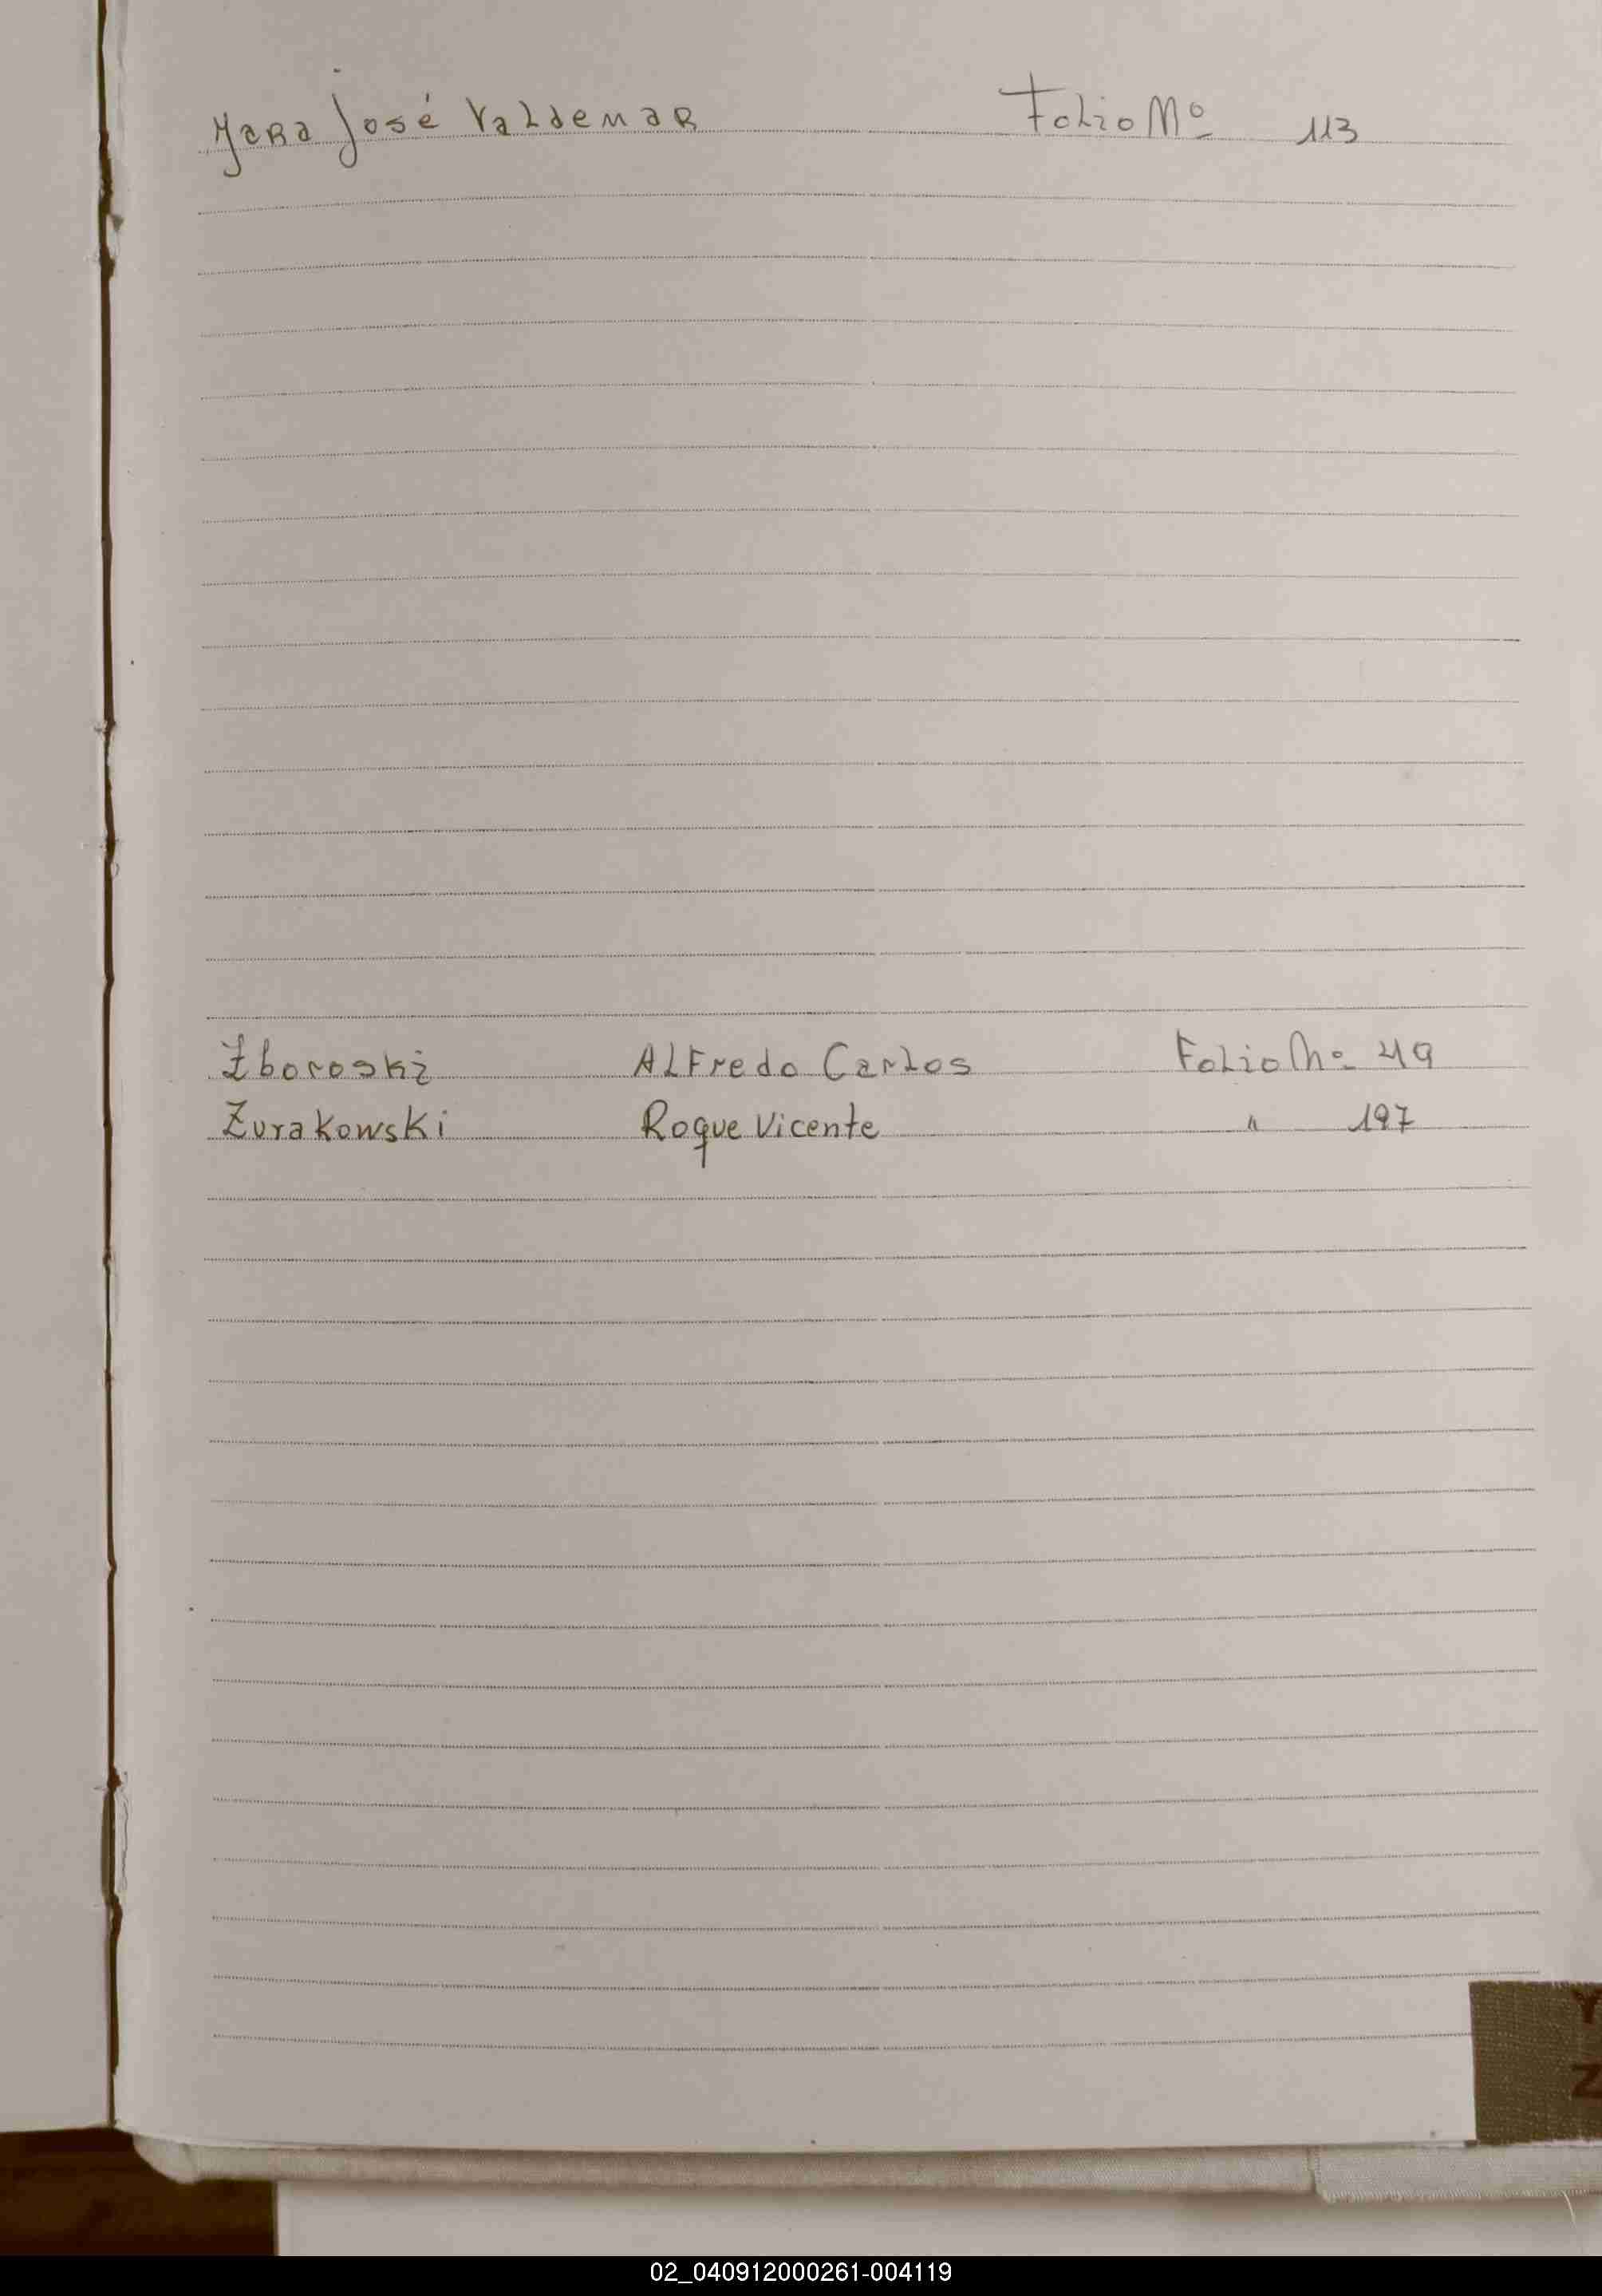 Yara José Valdemar Folio Nº 113
Zboroski Alfredo Carlos Folio Nº 49
Zurakowski Roque Vicente " 197
Y
Z
02_040912000261-004119